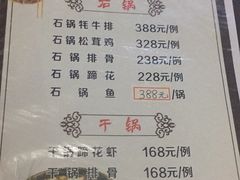 石锅
石锅牦牛排 388元/例
石锅松茸鸡 328元/例
石锅排骨 238元/例
石锅蹄花 228元/例
石锅鱼 388元/锅
干锅
干锅蹄花虾 168元/例
干锅排骨 168元/例